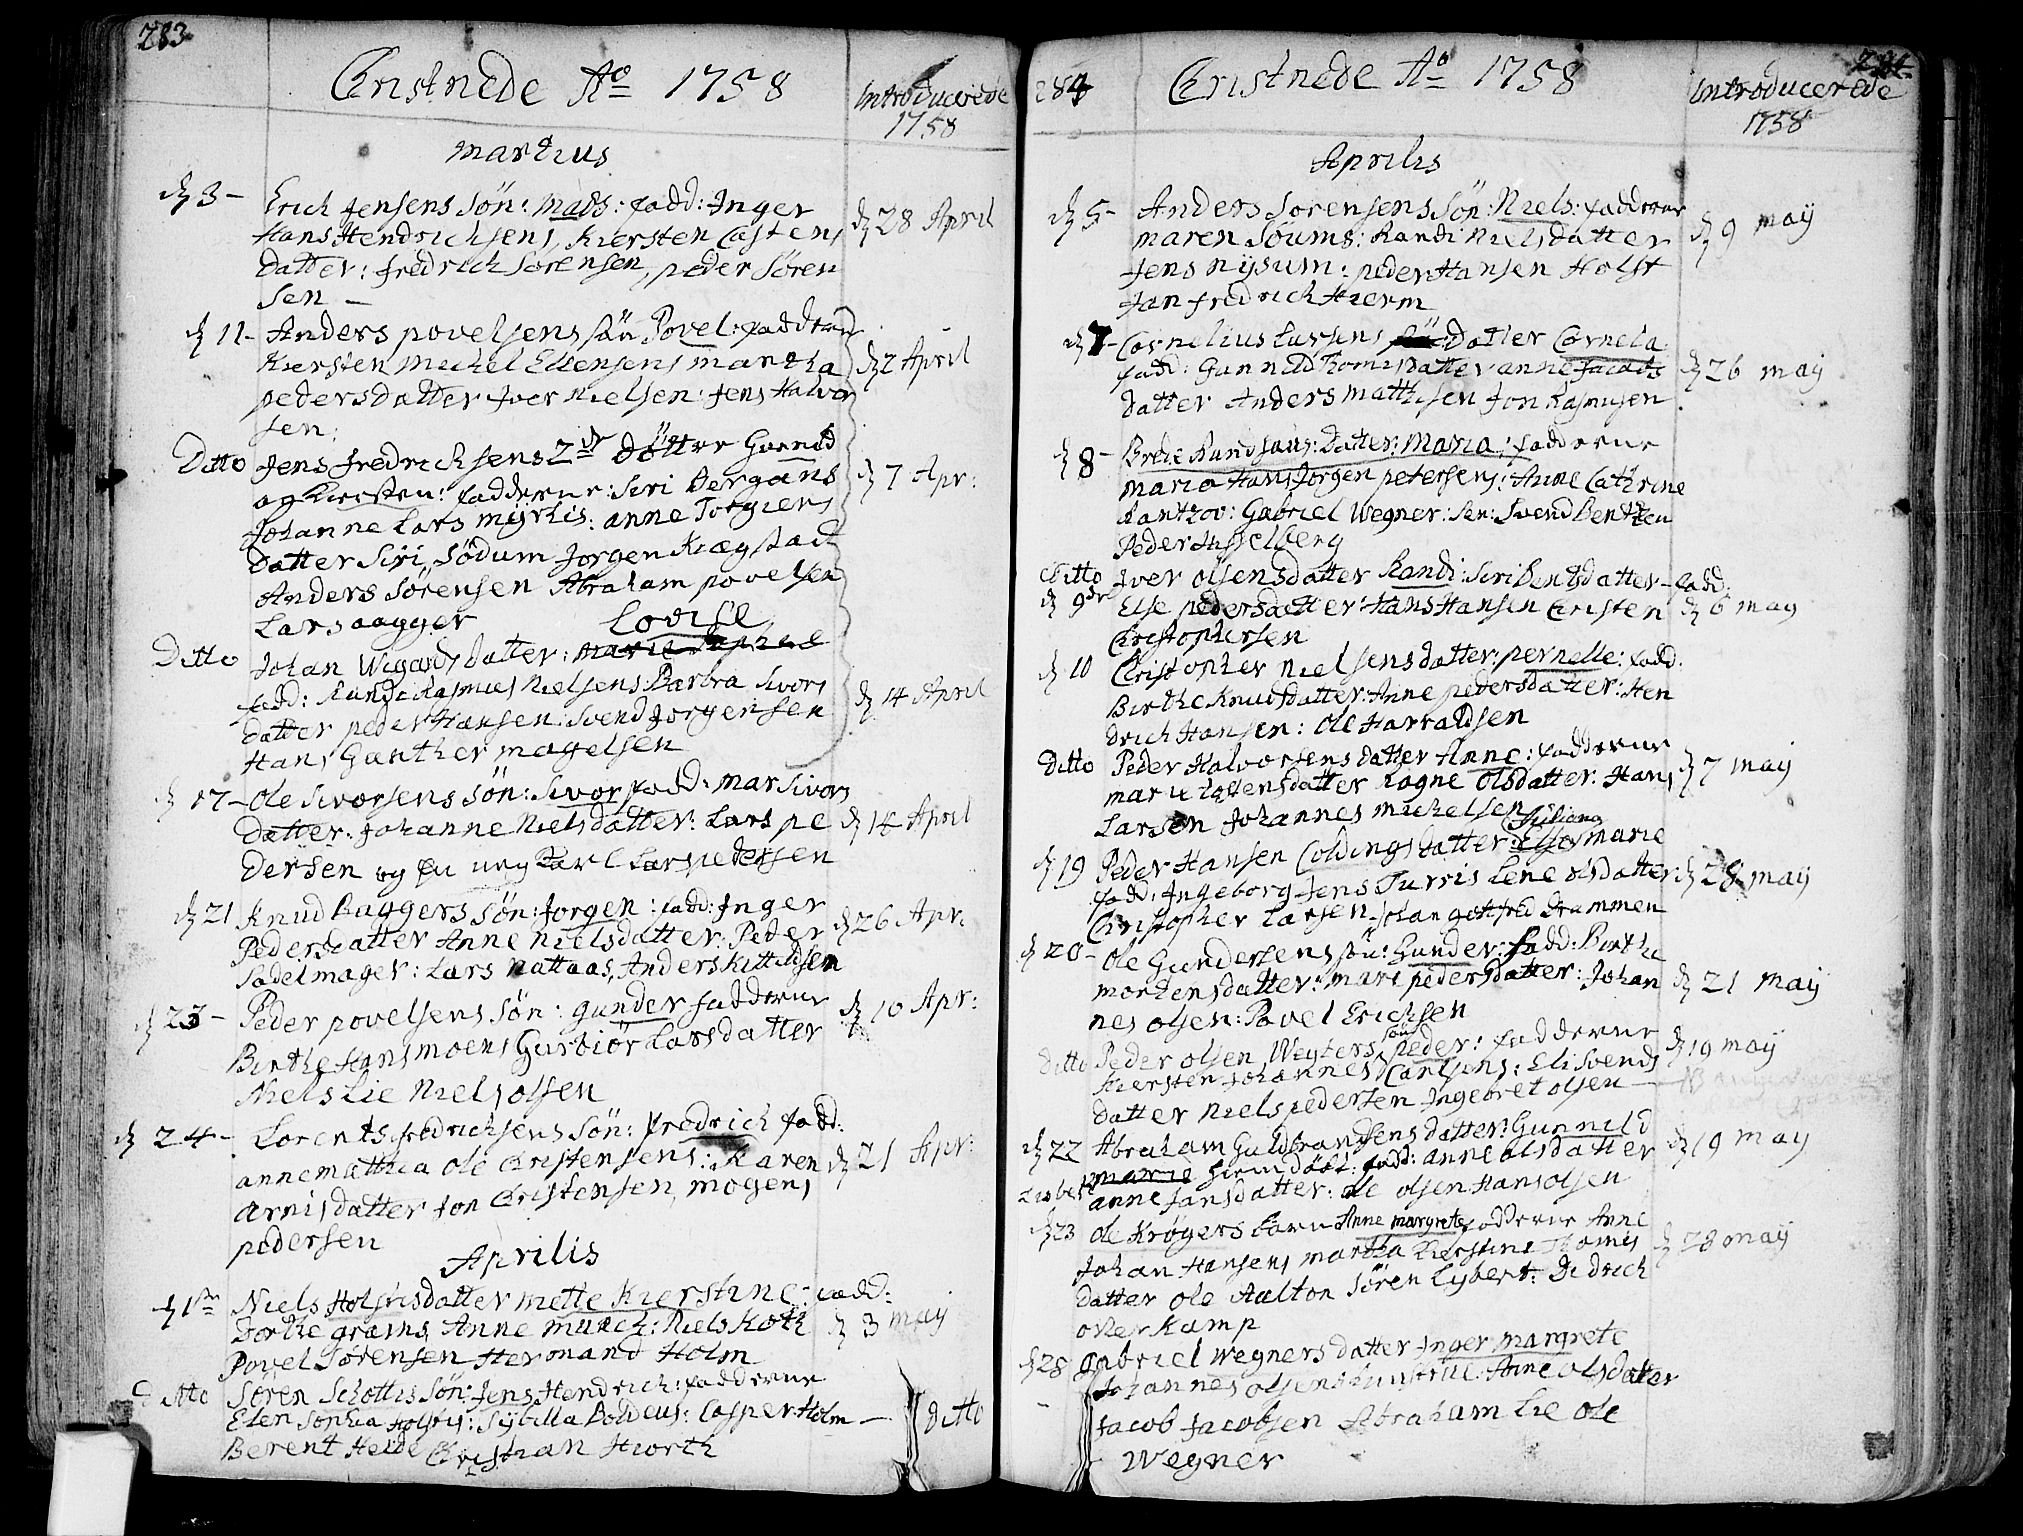 283
Christnede Aº 1758
Introducerede
1758
Martius
d 3 - Erich Jensens Søn: Mads: fadd: Inger
Hans Hendrichsens, Kiersten Castens
datter: fredrich Sørensen, peder Søren
sen -
d 28 April
d 11 - Anders povelsens søn Povel: fadderne
Kiersten Michel Ellensens martha
pedersdatter Iver Nielsen: Jens Halvor
sen:
d 2 April
Ditto Jens fredrichsens 2de døttre Gunnild
og Kirsten: fadderne: Siri Bergans
Johanne Lars Myrhis: anne Torgiers
datter Siri Sødum Jørgen Krægstad
Anders Sørensen Abraham povelsen
Lars aagger
d 7 Apr:
Lovise
Ditto Johan Wigands datter: Marie
fadd: Rundi Rasmus Nielsens: Barbra Sivors
datter peder Hansen: Svend Jørgensen
Hans Gunther magelsen
d 14 April
d 17 - Ole Sivorsens søn: Sivor fadd: Mar Sivors
datter: Johanne Nielsdatter: Lars pe
dersen og en ung Karl Lars Pedersen
d 14 April
d 21 Knud Baggers søn: Jørgen: fadd: Inger
Pedersdatter Anne Nielsdatter: Peder
Sadelmager: Lars Nattaas, Anders Kittilsen
d 26 Apr:
d 23 - Peder povelsens søn: gunder fadderne
Birthe Hans moens Gurbiør Larsdatter
Niels Lie Niels olsen
d 10 Apr:
d 24 - Lorents fredrichsens søn: fredrich fadd:
anne mathea ole Christensens: Karen
Arnisdatter Jon Christensen, mogens
pedersen
d 21 Apr:
Aprilis
d 1ste Niels Holstsdatter mette Kierstine: fadd:
Dorthe grams, Anne Munch: Niels Koth
Povel Sørensen Hermand Holm
d 3 maij
ditto Søren Schottis søn: Jens Hendrich: fadderne
Elen Sophia Holstis: Sybilla Boldeus: Casper Holm -
Berent Heide Christian Hiorth
ditto
284
Christnede Aº 1758
Introducerede
1758
Aprilis
d 5 - Anders Sørensens Søn: Niels: fadderne
maren Soums: Randi Nielsdatter
Jens Nysum: peder Hansen Holst
Jan fredrich Hierm
d 9 maij
d 7 - Cornelius Larsens datter Cornela
fadd: Gunnild Tomisdatter anne Jacobs
datter Anders Matthisen Jon Rasmusen
d 26 maij
d 8 - Brede Rundsaus: Datter: Maria: fadderne
Maria Hans Jørgen petersens: Anne Cathrine
Rantzov: Gabriel Wegner: Sen: Svend Bentzen
Peder Hysselberg
Ditto Iver olsens datter Randi: Siri Bentsdatter - fadd:
d 9de Else pedersdatter: Hans Hansen Christen
Christophersen
d 6 maij
d 10 Christopher Nielsens datter: pernelle: fadd:
Birthe Knudsdatter: Anne pedersdatter: Hen
drich Hansen: ole Harraldsen
Ditto Peder Halvorsens datter Anne: fadderne
marie tostensdatter Ragne olsdatter: Hans
Larsen Johannes Michelsen
d 7 maij
Juliana
d 19 Peder Hansen Coldings datter: Else Marie
fadd: Ingeborg Jens Turris Lene olsdatter
Christopher Larsen Johan gotfred Drammen
d 28 maij
d 20 - Ole Gundersens søn: Gunder: fadd: Birthe
Mortensdatter: Mari pedersdatter: Johan
nes olsen: Povel Erichsen
d 21 maij
ditto Peder olsen Weyters søn peder: fadderne
Kiersten Johannes Carlsens: Eli Svends
datter Niels pedersen Ingebret olsen
d 19 maij
d 22 Abraham Guldbrandsens datter: Gunnild
Lisbet marie hiemdøbt: fadd: anne olsdatter
anne Jansdatter: ole olsen Hans olsen
d 19 maij
d 23 ole Krøgers barn Anne margrete fadderne Anne
Johan Hansens martha Kierstine Thomis
datter ole Aalton Søren Lybert: Didrich
otter kamp
d 28 maij
d 28 Gabriel Wegners datter Inger Margrete
Johannes olsens hustrue: Anne olsdatter
Jacob Jacobsen Abraham Lie ole
Wegner